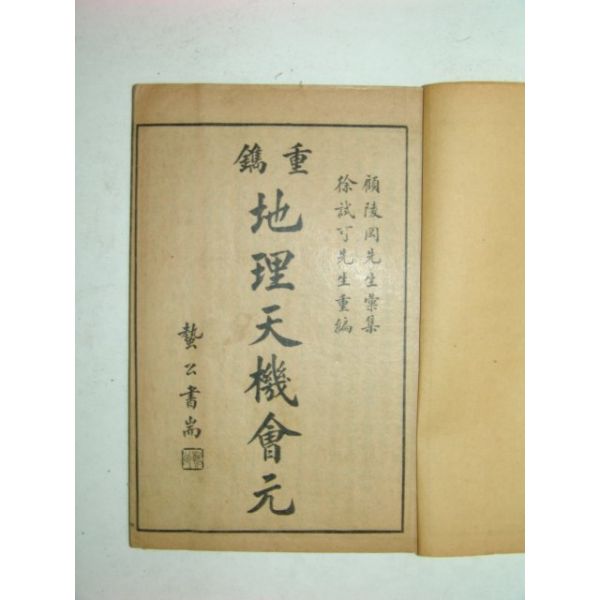 顧陵岡先生彙集
徐試可先生重編
重鐫
地理天機會元
蟄公書耑